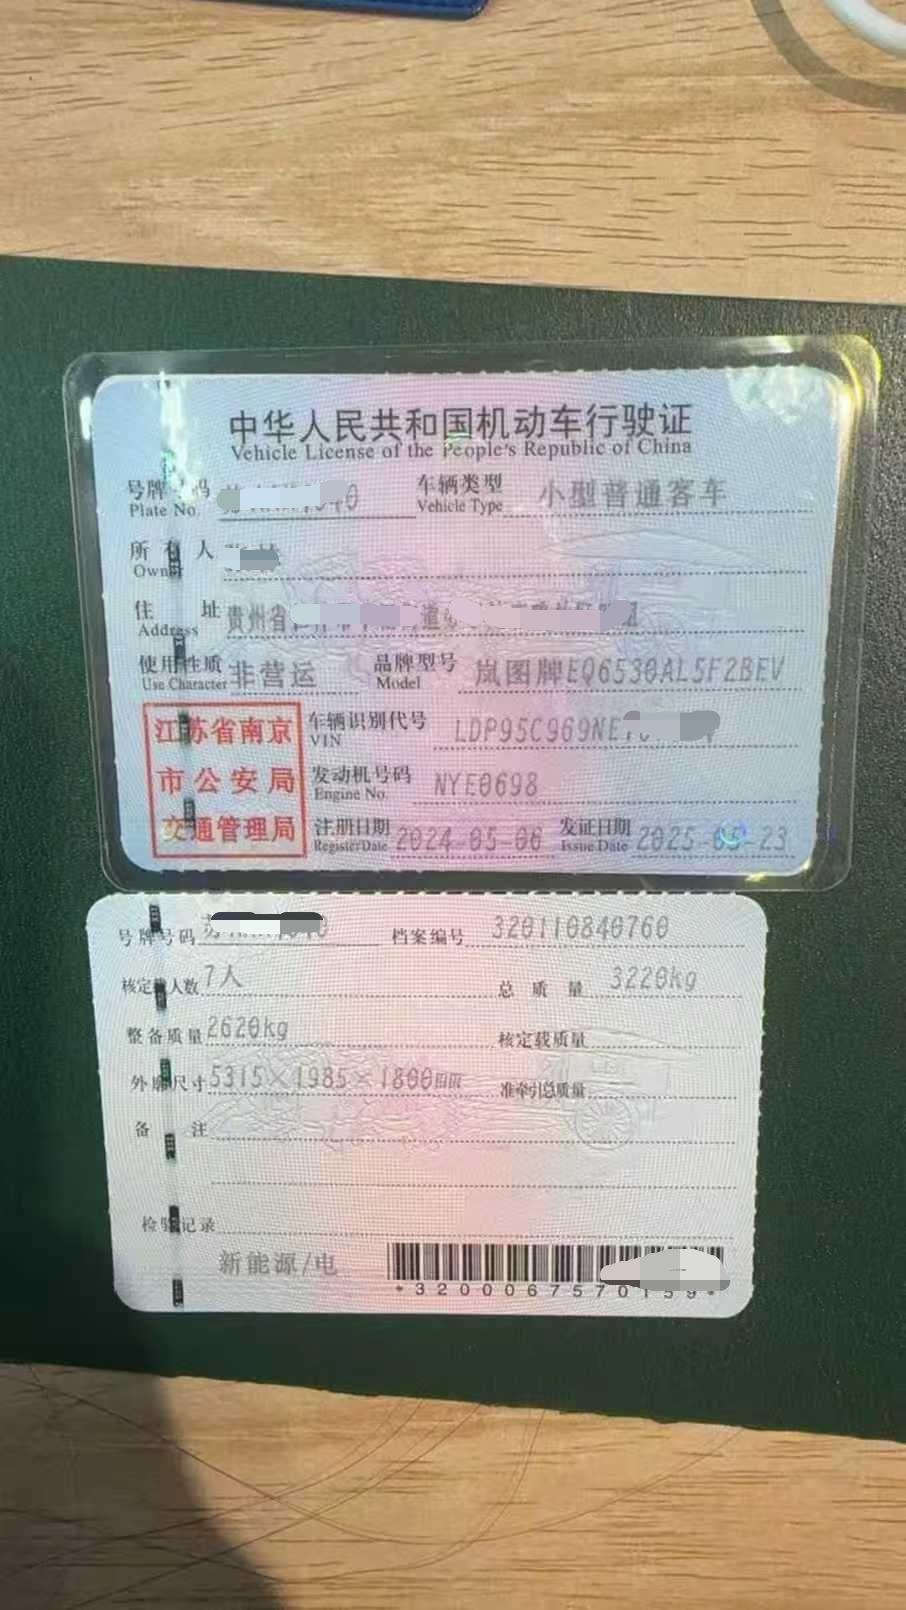 中华人民共和国机动车行驶证
Vehicle License of the People's Republic of China
号牌号码
Plate No.
车辆类型 小型普通客车
Vehicle Type
所有人
Owner
住址 贵州省
Address
使用性质 非营运
Use Character
品牌型号 岚图牌EQ6530AL5F2BEV
Model
江苏省南京
市公安局
交通管理局
车辆识别代号 LDP95C969NE
VIN
发动机号码 NYE0698
Engine No.
注册日期 2024-05-06
Register Date
发证日期 2025-05-23
Issue Date
号牌号码 苏
档案编号 320110840760
核定载人数 7人
总质量 3220kg
整备质量 2620kg
核定载质量
外廓尺寸 5315×1985×1800mm
准牵引总质量
备注
检验记录
新能源/电
*3200067570159*